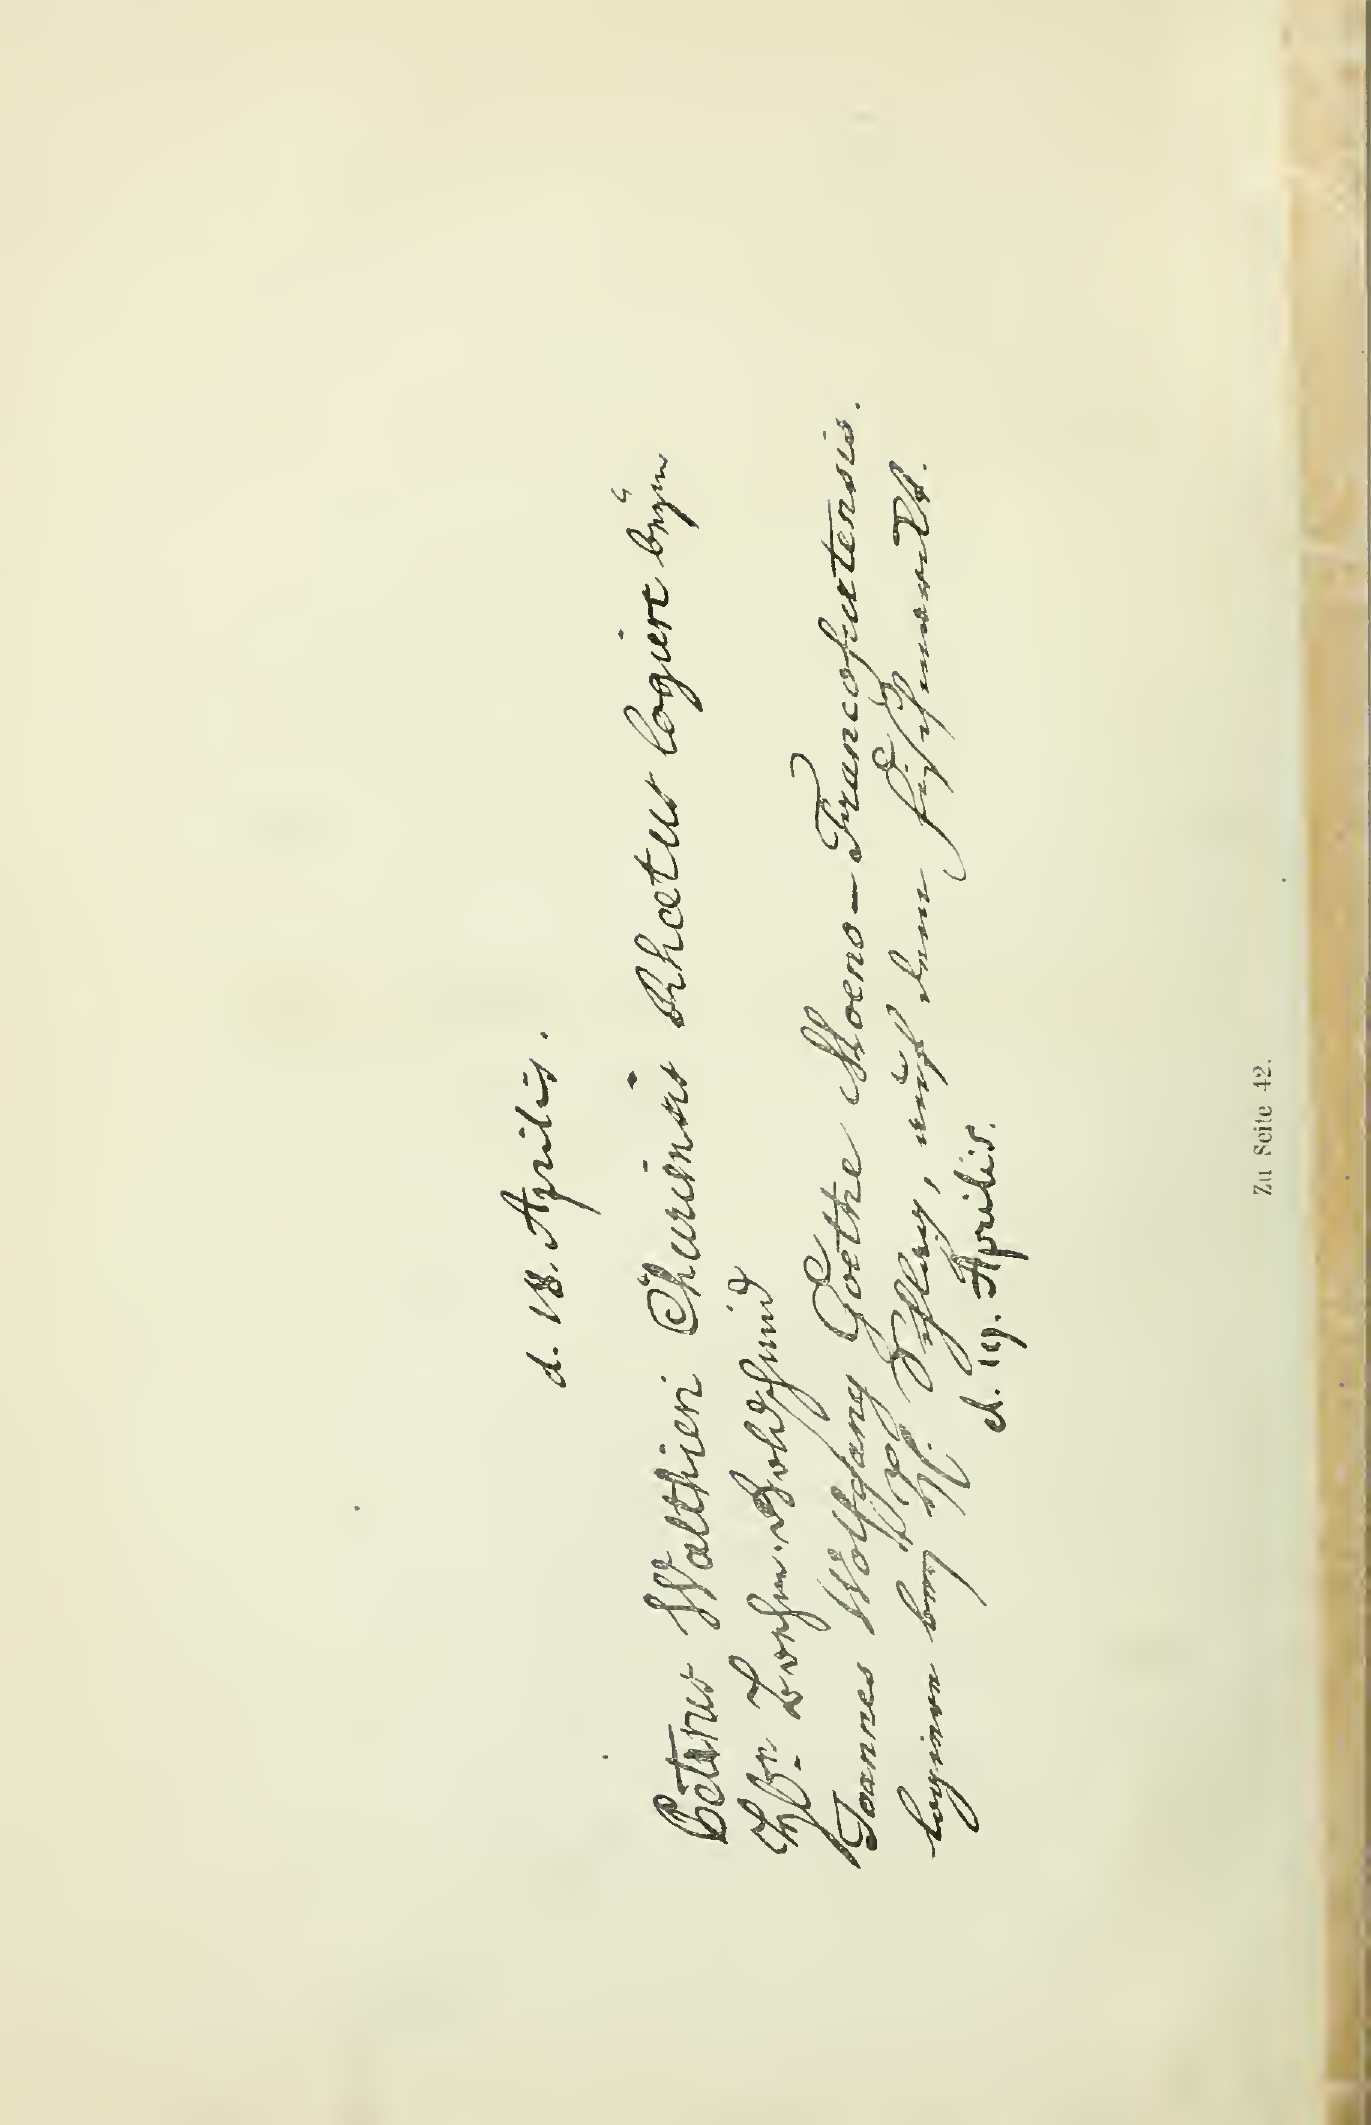 d. 18. Aprilis.
Petrus Walthieri Churiensis Rhaetus logiert beym
Joannes Wolffgang Goethe Moeno-Francofurtensis.
logiret bey H. Schlag, auf dem Fischmarckt.
d. 19. Aprilis.
Zu Seite 42.